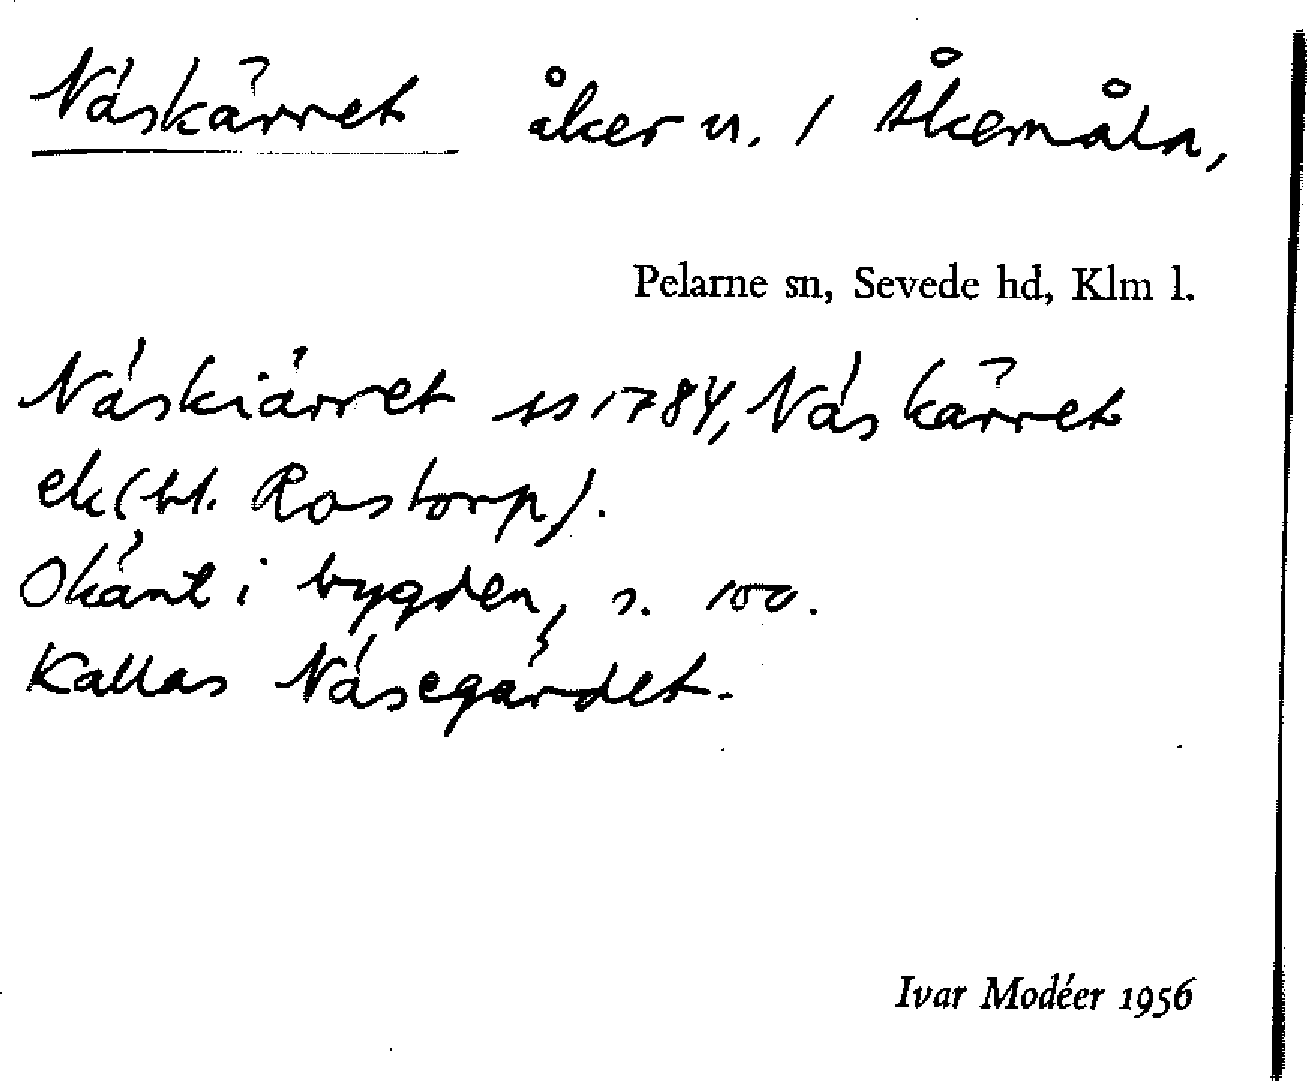 Näskärret åker n. / Åkemåla,
Pelarne sn, Sevede hd, Klm l.
Näskiärret ss 1784, Näs kärret
ek (bl. Rostorp).
Okänt i bygden, s. 100.
Kallas Näsegärdet.
Ivar Modéer 1956